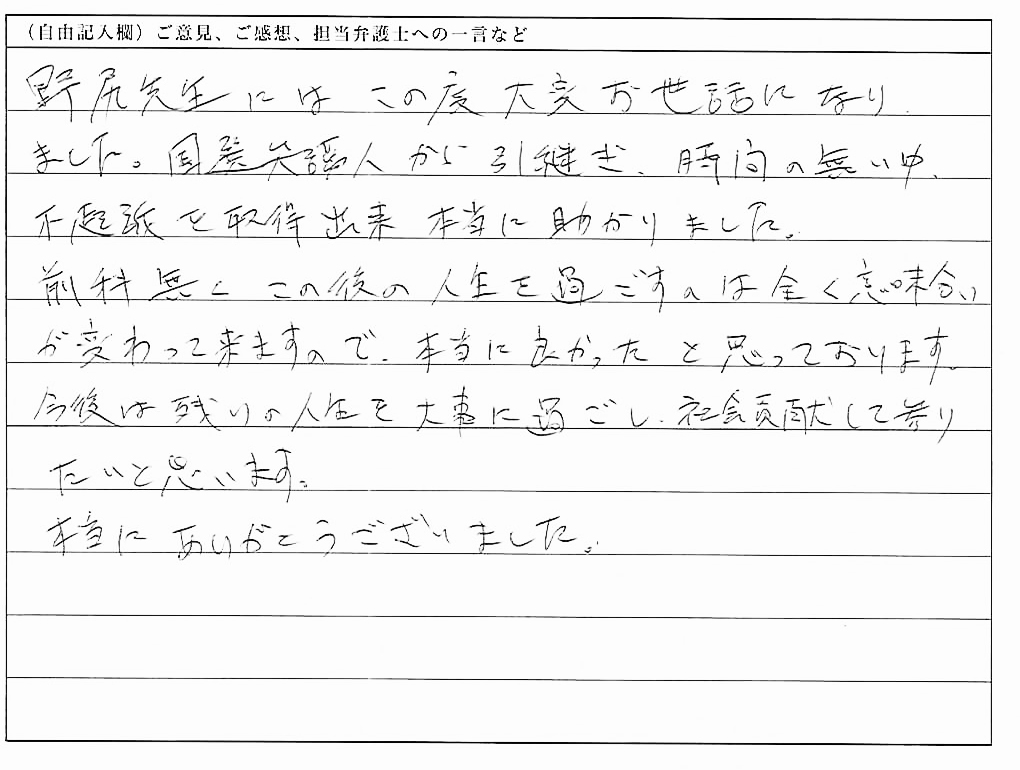 （自由記入欄）ご意見、ご感想、担当弁護士への一言など
野尻先生にはこの度大変お世話になり
ました。国選弁護人から引継ぎ、時間の無い中、
不起訴を取得出来本当に助かりました。
前科無くこの後の人生を過ごすのは全く意味合い
が変わって来ますので、本当に良かったと思っております。
今後は残りの人生を大事に過ごし、社会貢献して参り
たいと思います。
本当にありがとうございました。